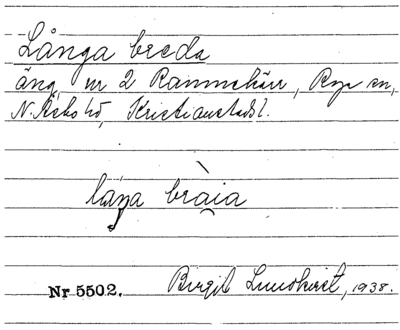 Långa breda
äng, nr 2 Rammekärr, Rya sn,
N. Åsbo hd, Kristianstads l.
låŋa bràia
Nr 5502. Birgit Lundkvist, 1938.